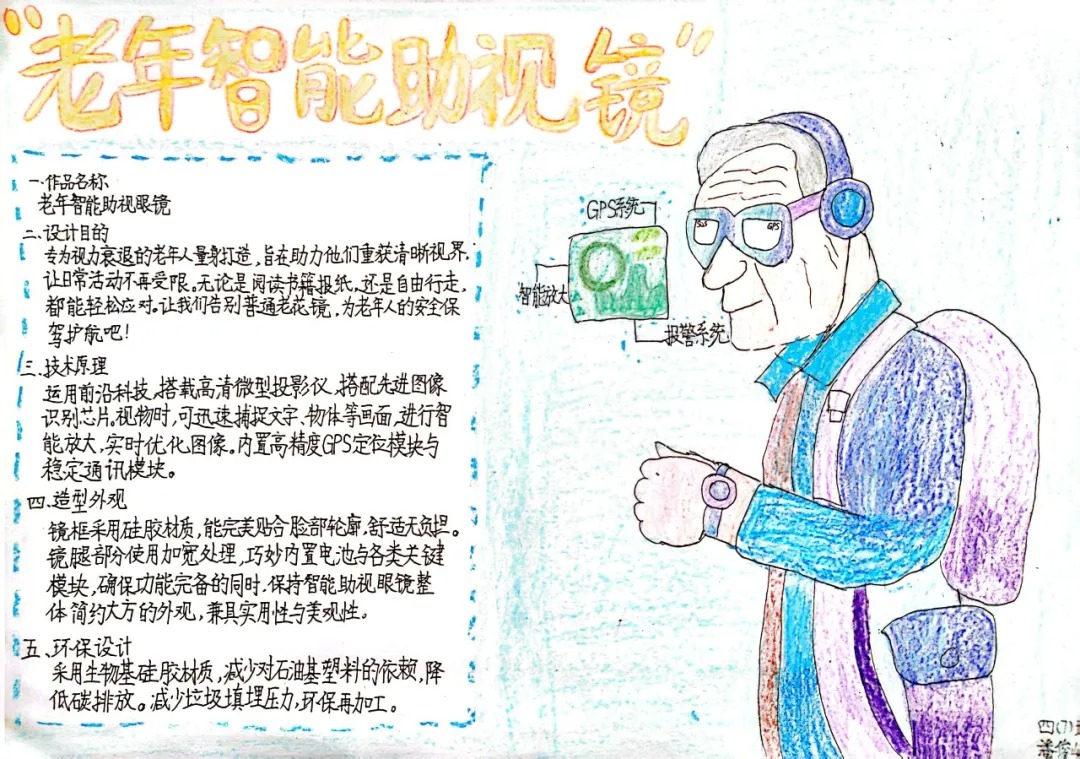 “老年智能助视镜”
一.作品名称
老年智能助视眼镜
二.设计目的
专为视力衰退的老年人量身打造,旨在助力他们重获清晰视界,
让日常活动不再受限.无论是阅读书籍报纸,还是自由行走,
都能轻松应对.让我们告别普通老花镜,为老年人的安全保
驾护航吧!
三.技术原理
运用前沿科技,搭载高清微型投影仪,搭配先进图像
识别芯片.视物时,可迅速捕捉文字、物体等画面,进行智
能放大,实时优化图像。内置高精度GPS定位模块与
稳定通讯模块。
四.造型外观
镜框采用硅胶材质,能完美贴合脸部轮廓,舒适无负担。
镜腿部分使用加宽处理,巧妙内置电池与各类关键
模块,确保功能完备的同时.保持智能助视眼镜整
体简约大方的外观,兼具实用性与美观性。
五、环保设计
采用生物基硅胶材质,减少对石油基塑料的依赖,降
低碳排放。减少垃圾填埋压力,环保再加工。
GPS系统
智能放大
报警系统
GPS
四(7)